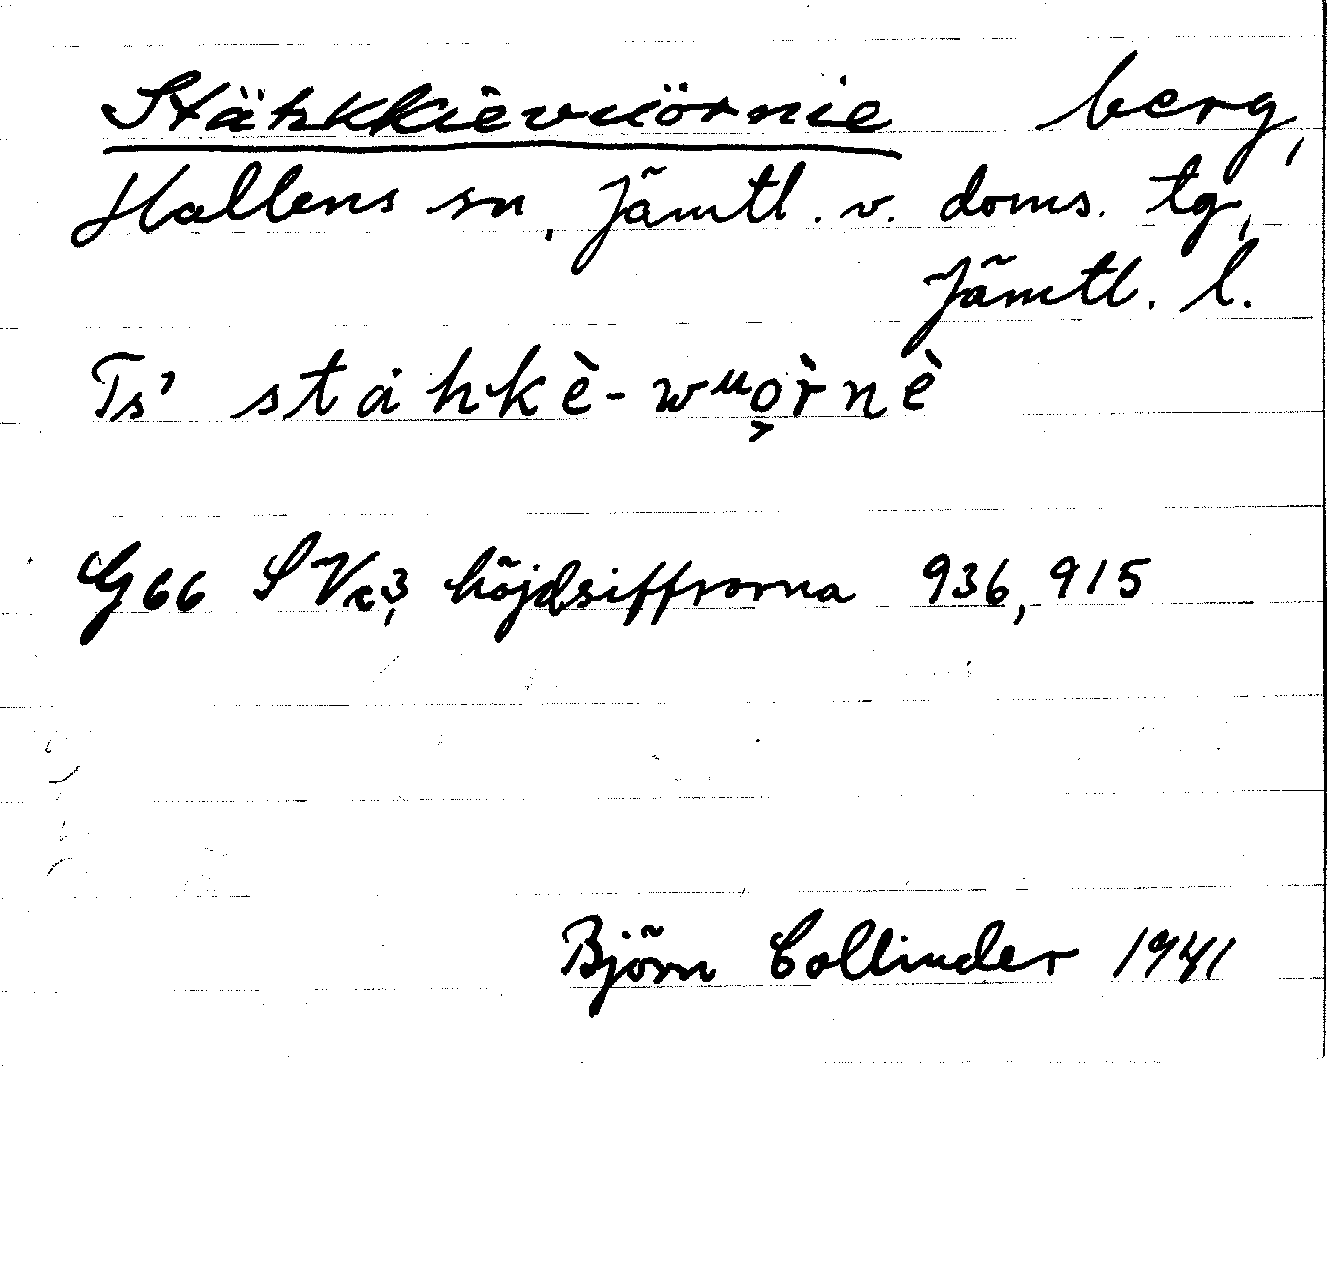 Stähkkievuörnie berg,
Hallens sn, Jämtl. v. doms. tg,
Jämtl. l.
Ts' stȧhkè-wᵘo̭r̀nè
G66 SV höjdsiffrorna 936, 915
Björn Collinder 1941